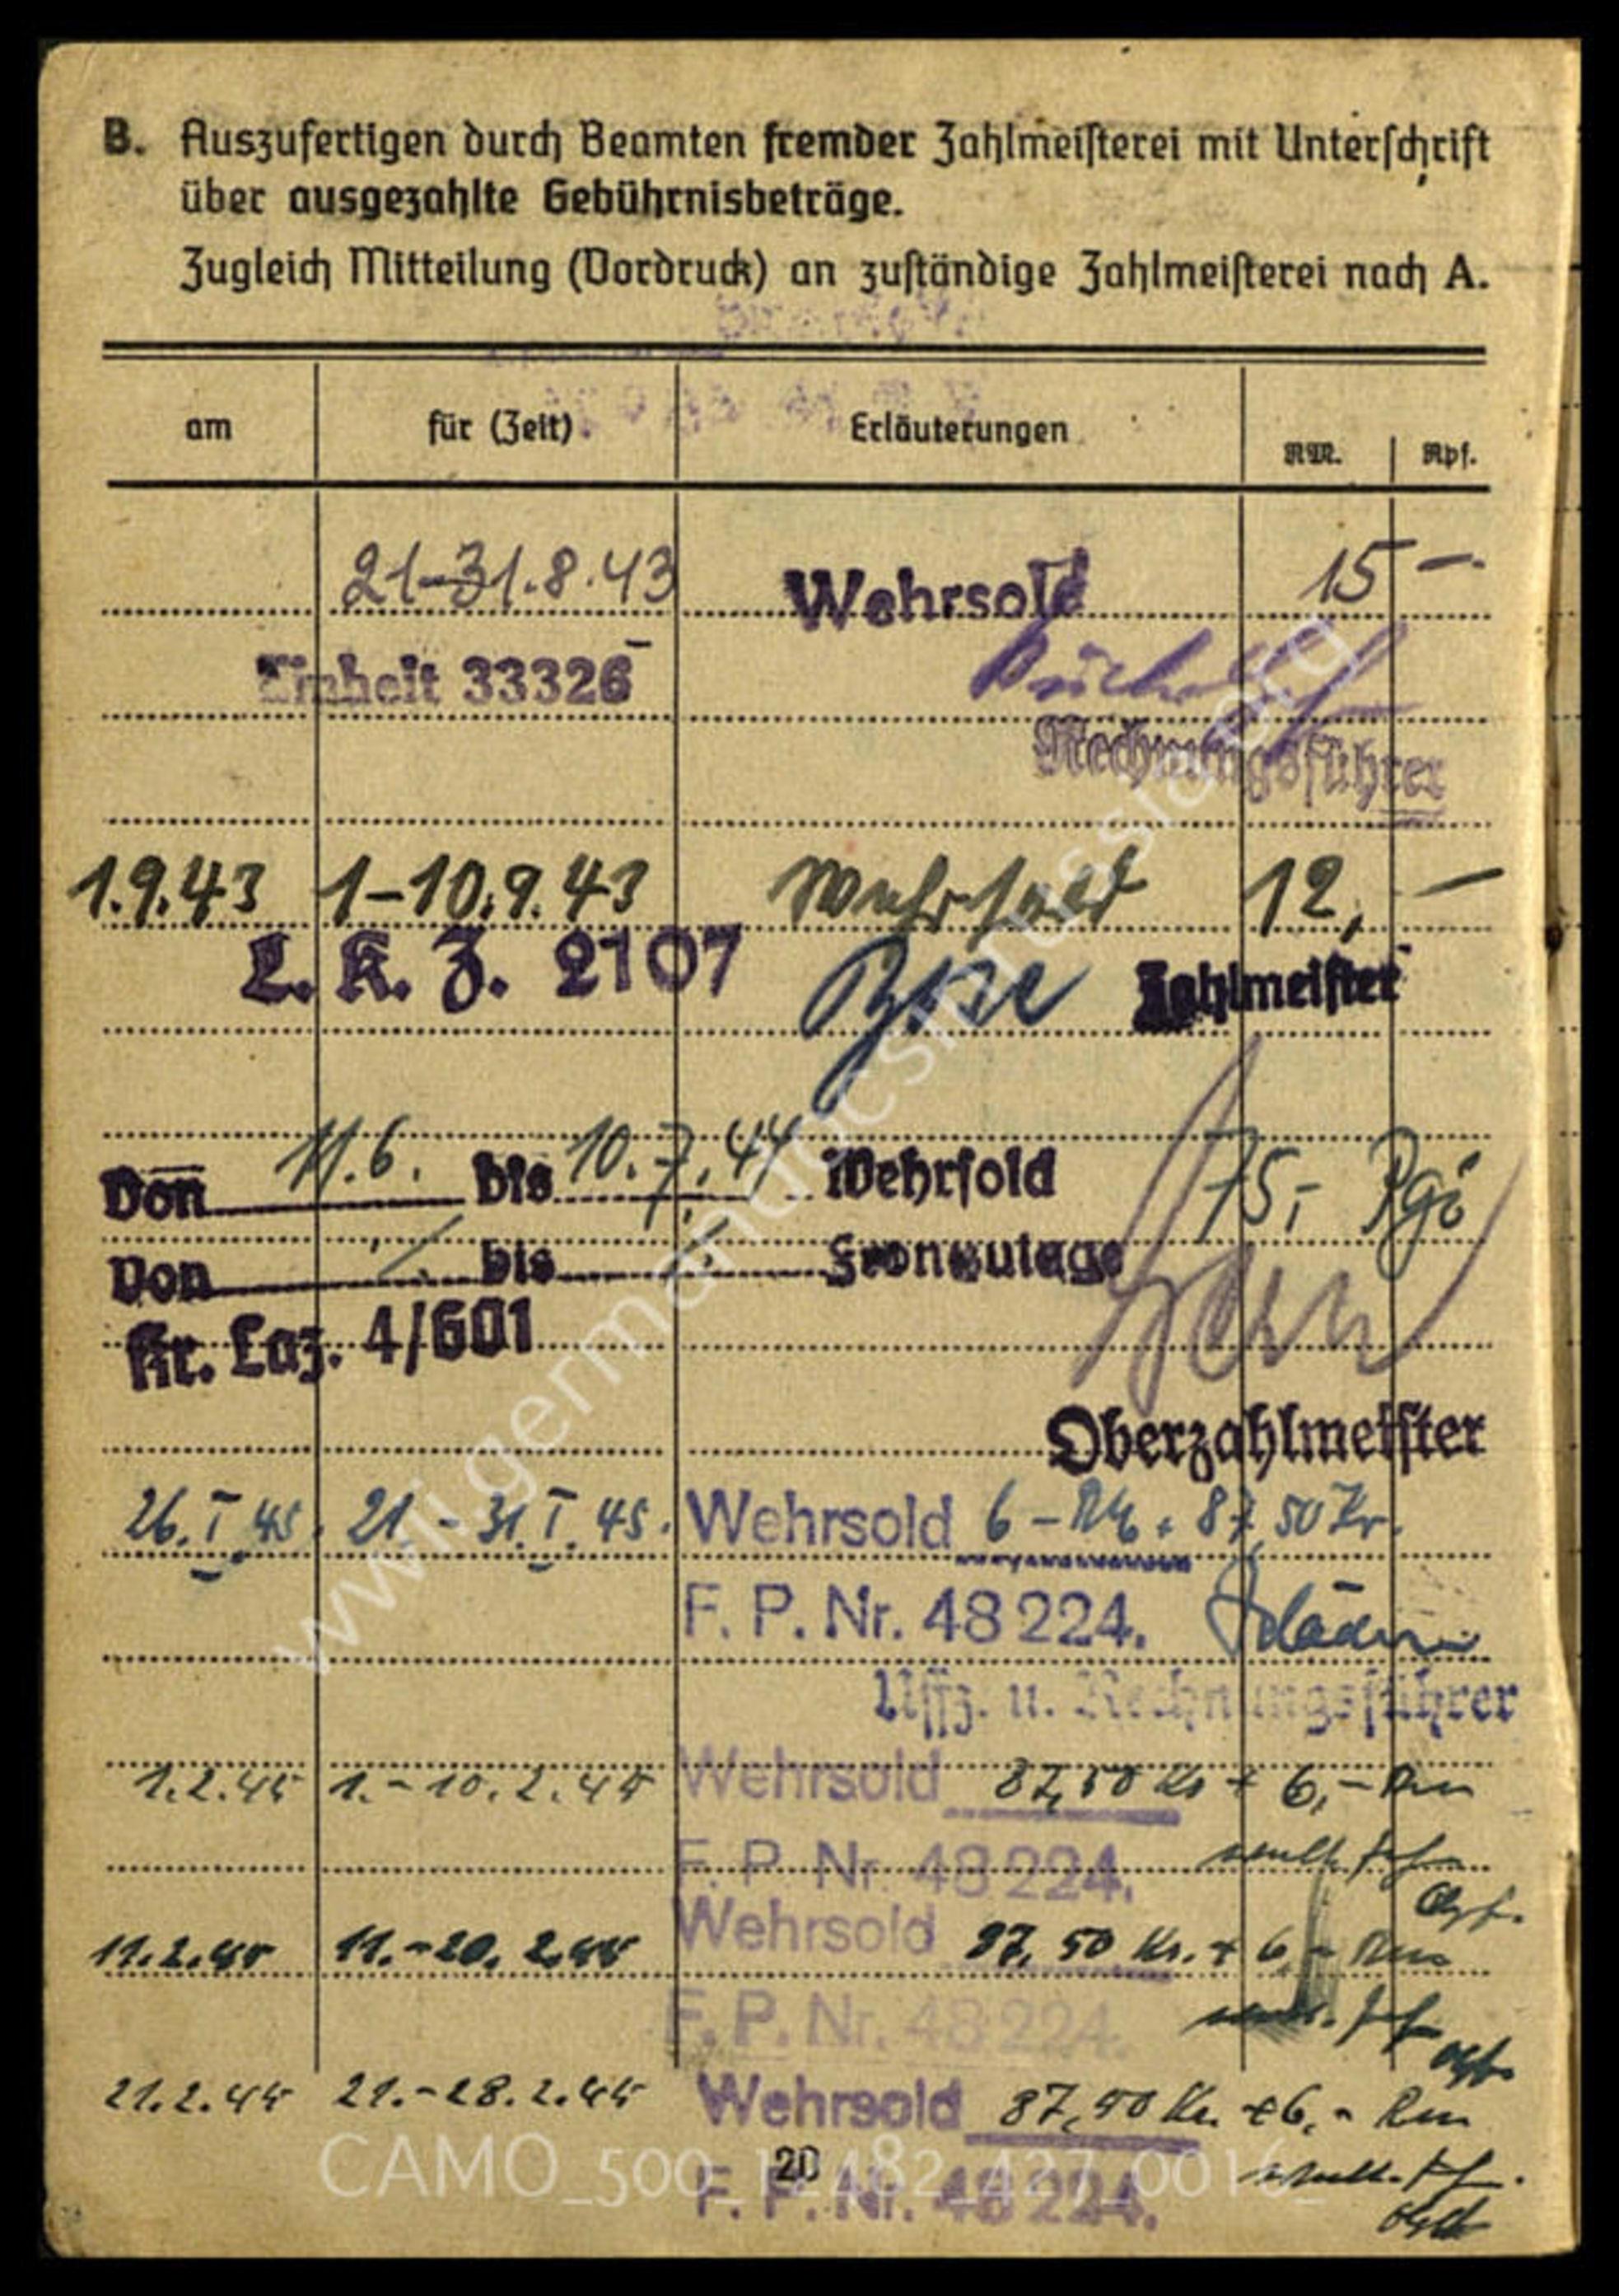 B. Auszufertigen durch Beamten fremder Zahlmeisterei mit Unterschrift
über ausgezahlte Gebührnisbeträge.
Zugleich Mitteilung (Vordruck) an zuständige Zahlmeisterei nach A.
am für (Zeit) Erläuterungen RM. Rpf.
21-31.8.43 Wehrsold 15 –
Einheit 33326
Rechnungsführer
1.9.43 1–10.9.43 Wehrsold 12, –
L. K. Z. 2107 Zahlmeister
Von 11.6. bis 10.7.44 Wehrsold 75,-
Von bis Frontzulage
Kr. Laz. 4/601
Oberzahlmeister
26. I 45. 21. - 31. I. 45. Wehrsold 6 – RM + 87 50 Kr.
F. P. Nr. 48 224.
Uffz. u. Rechnungsführer
1.2.45 1. - 10. 2. 45 Wehrsold 87,50 Kr + 6,– Rm
F. P. Nr. 48 224.
11.2.45 11. - 20. 2.45 Wehrsold 87, 50 Kr. + 6,- Rm
F. P. Nr. 48 224.
21.2.45 21. - 28. 2. 45 Wehrsold 87,50 Kr. + 6,- Rm
20
F. P. Nr. 48 224.
CAMO_500_12482_427_0016_